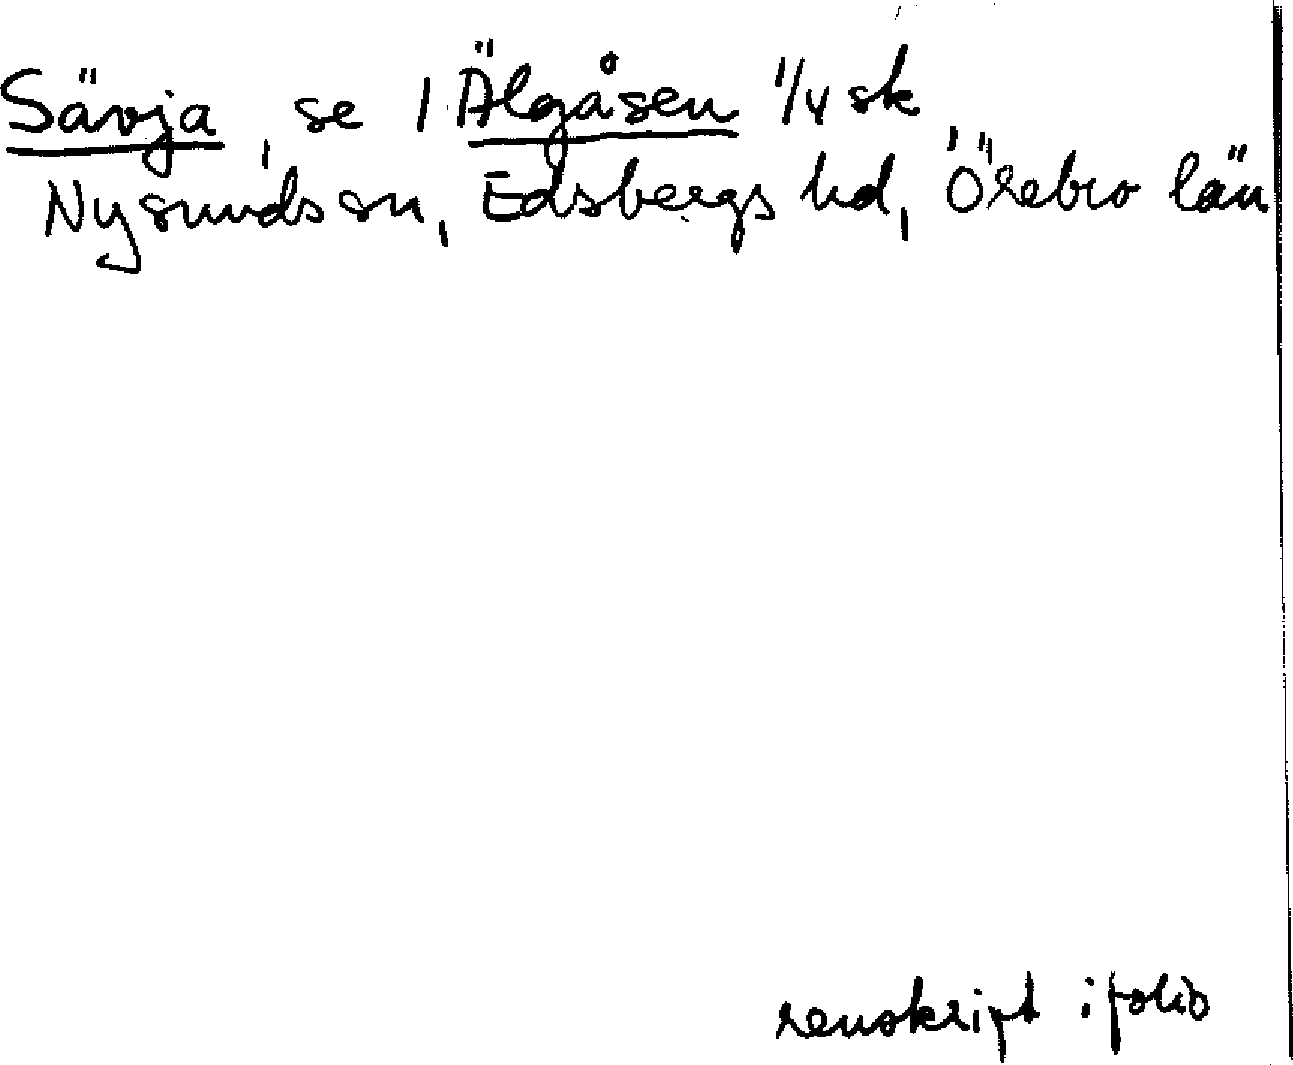 Sävja, se 1 Älgåsen 1/4 sk
Nysunds sn, Edsbergs hd, Örebro län
renskript i folio